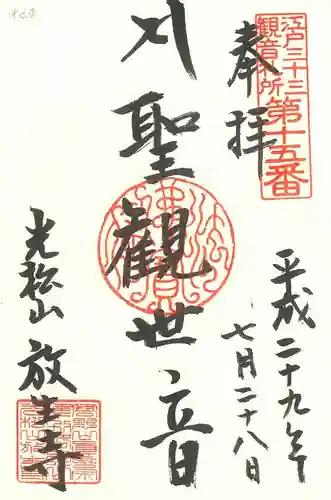 江戸三十三
観音札所
第十五番
奉拝
平成二十九年
七月二十八日
聖觀世音
光松山
放生寺